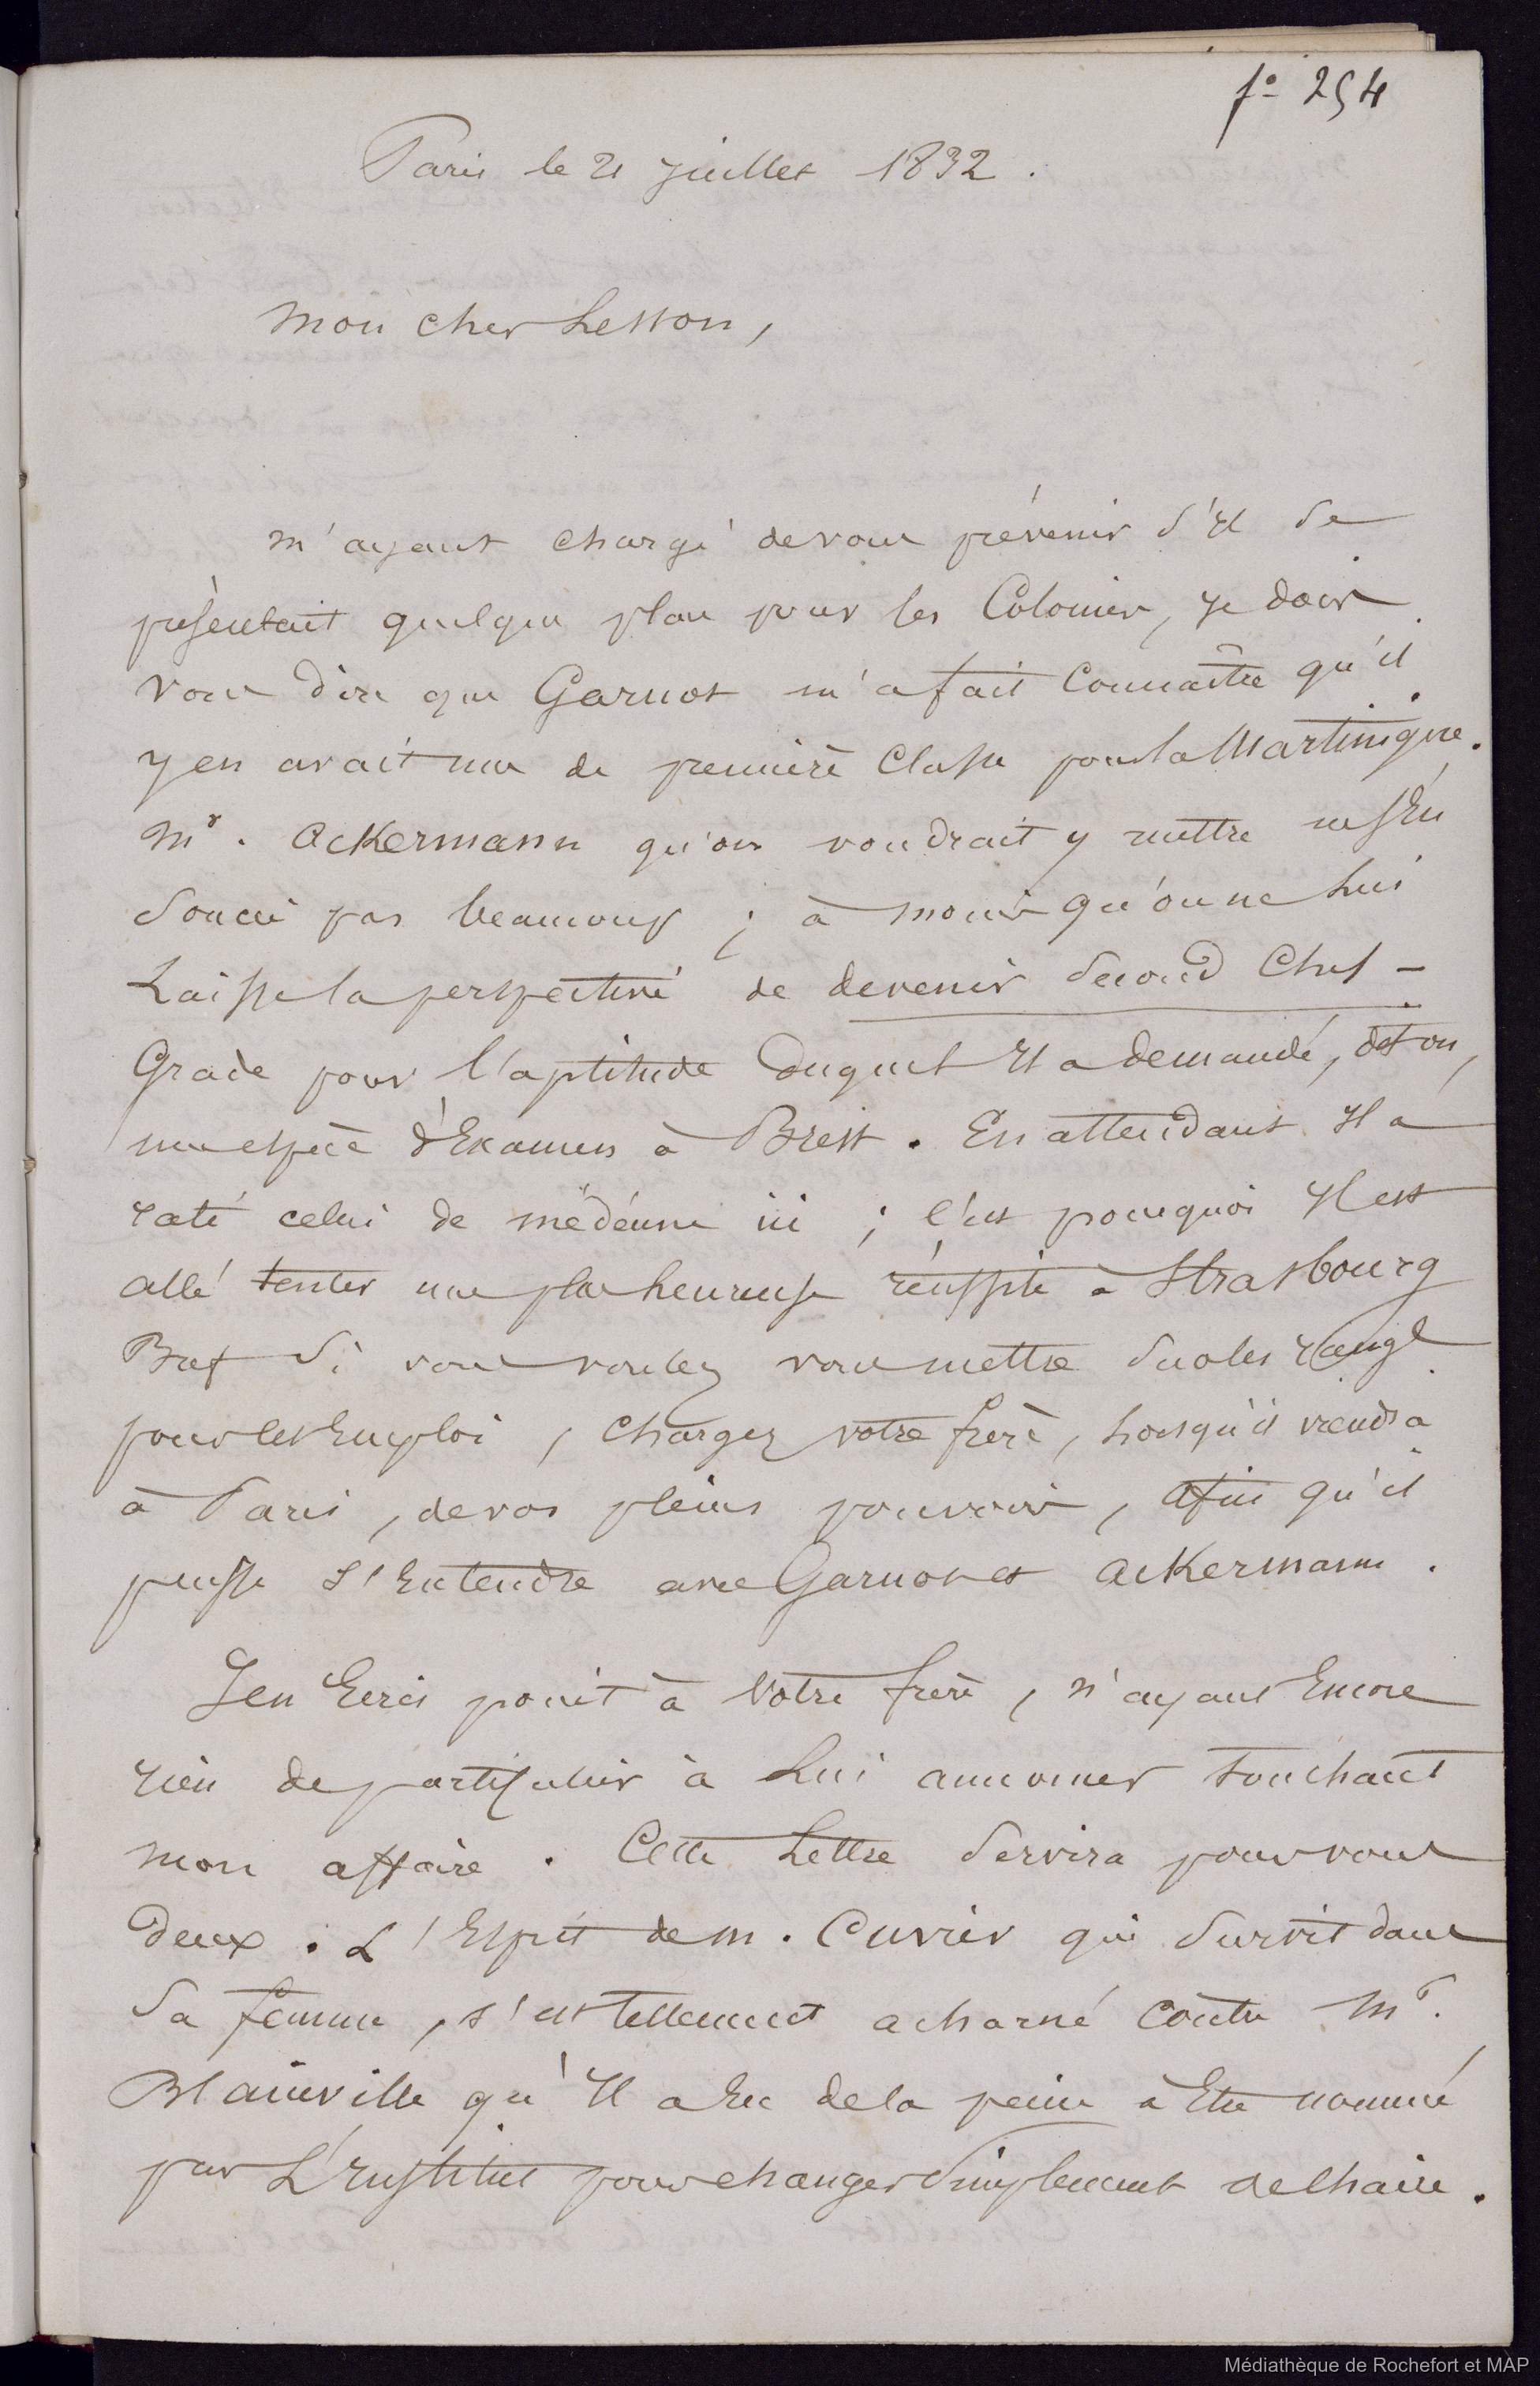 fo 254
Paris le 21 Juillet 1832.
Mon cher Lesson,
m'ayant chargé de vous prévenir s'Il se
présentait quelque place pour les Colonies, Je dois
vous dire que Garnot m'a fait Connaître qu'il
y en avait une de première Classe pour la Martinique.
Mr. Ackermann qu'on voudrait y mettre ne s'En
soucie pas beaucoup ; à moins qu'on ne Lui
Laisse la perspective de devenir second Chef -
Grade pour l'aptitude duquel Il a demandé, dit on,
une espèce d'Examen à Brest. En attendant Il a
raté celui de médecine ici ; C'est pourquoi Il est
allé tenter une plus heureuse réussite à Strasbourg
Bref si vous voulez vous mettre sur les rangs
pour les Emploi, Chargez votre frère, Lorsqu'il viendra
à Paris, de vos pleins pouvoirs, afin qu'il
puisse s'Entendre avec Garnot et Ackermann.
Je n'Ecris point à votre frère, n'ayant Encore
rien de particulier à Lui annoncer touchant
mon affaire. Cette Lettre servira pour vous
deux. L'Esprit de m. Cuvier qui survit dans
sa femme, s'est tellement acharné contre Mr.
Blainville qu'Il a Eu de la peine à Etre nommé
par L'Institut pour changer simplement de Chaire.
Médiathèque de Rochefort et MAP